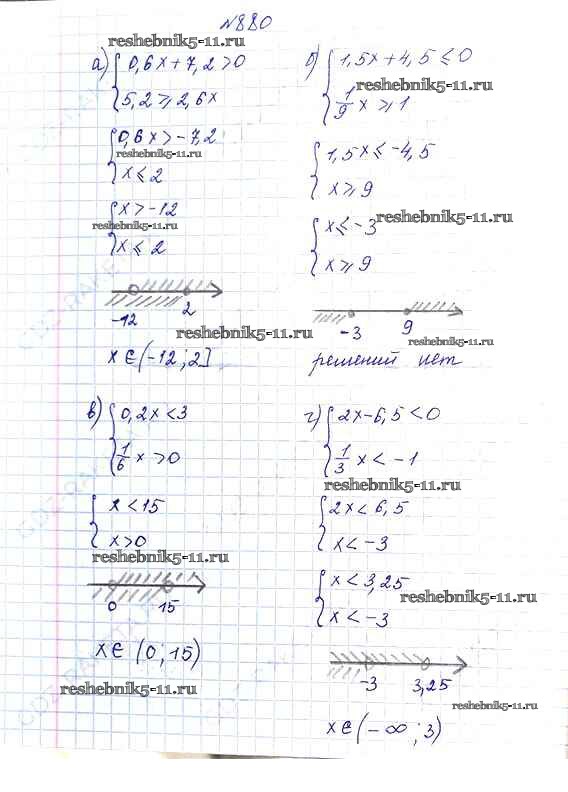 №880
reshebnik5-11.ru
а) { 0,6x+7,2>0
5,2⩾2,6x
{ 0,6x>-7,2
reshebnik5-11.ru
x⩽2
reshebnik5-11.ru
{ x>-12
x⩽2
-12 2
reshebnik5-11.ru
x∈(-12;2]
б) { 1,5x+4,5⩽0
1/9 x⩾1
{ 1,5x⩽-4,5
x⩾9
reshebnik5-11.ru
{ x⩽-3
x⩾9
-3 9
reshebnik5-11.ru
решений нет
в) { 0,2x<3
1/6 x>0
{ x<15
x>0
reshebnik5-11.ru
0 15
x∈(0;15)
reshebnik5-11.ru
г) { 2x-6,5<0
1/3 x<-1
reshebnik5-11.ru
{ 2x<6,5
x<-3
{ x<3,25
reshebnik5-11.ru
x<-3
-3 3,25
reshebnik5-11.ru
x∈(-∞;3)